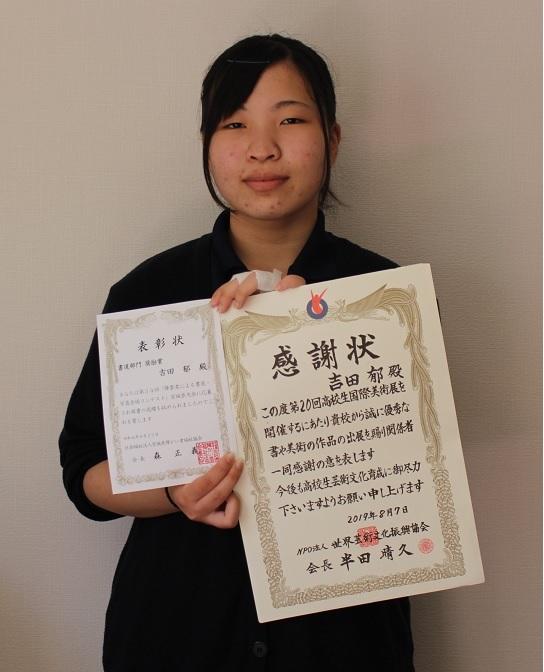 表彰状
書道部門 奨励賞
吉田 郁 殿
会長 森 正義
感謝状
吉田 郁 殿
この度第20回高校生国際美術展を
開催するにあたり貴校から誠に優秀な
書や美術の作品の出展を賜り関係者
一同感謝の意を表します
今後も高校生芸術文化育成に御尽力
下さいますようお願い申し上げます
2019年8月7日
NPO法人 世界芸術文化振興協会
会長 半田 晴久